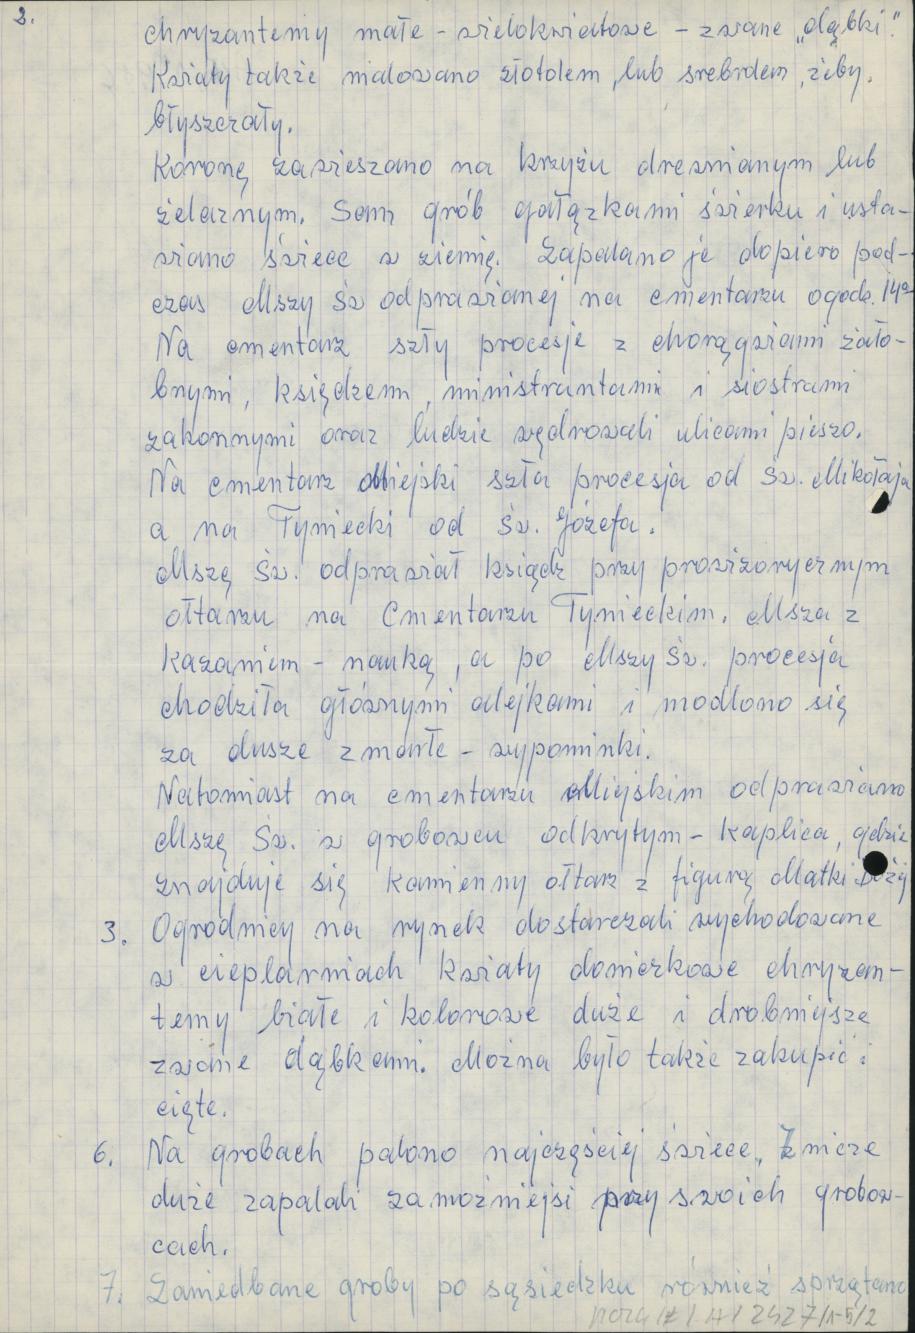 2.
chryzantemy małe - wielokwiatowe - zwane „dąbki".
Kwiaty także malowano złotolem, lub srebrdem, żeby
błyszczały.
Koronę zawieszano na krzyżu drewnianym lub
żelaznym. Sam grób gałązkami świerku i usta-
wiano świece w ziemię. Zapalano je dopiero pod-
czas Mszy Św odprawianej na cmentarzu o godz. 14⁰⁰
Na cmentarz szły procesje z chorągwiami żało-
bnymi, księdzem, ministrantami i siostrami
zakonnymi oraz ludzie wędrowali ulicami pieszo.
Na cmentarz Miejski szła procesja od Św. Mikołaja
a na Tyniecki od Św. Józefa.
Mszę Św. odprawiał ksiądz przy prowizorycznym
ołtarzu na Cmentarzu Tynieckim. Msza z
kazaniem - nauką, a po Mszy Św. procesja
chodziła głównymi alejkami i modlono się
za dusze zmarłe - wypominki.
Natomiast na cmentarzu Miejskim odprawiano
Mszę Św. w grobowcu odkrytym - kaplica, gdzie
znajduje się kamienny ołtarz z figurą Matki Bożej
3. Ogrodnicy na rynek dostarczali wychodowane
w cieplarniach kwiaty doniczkowe chryzan-
temy białe i kolorowe duże i drobniejsze
zwane dąbkami. Można było także zakupić i
cięte.
6. Na grobach palono najczęściej świece, Znicze
duże zapalali zamożniejsi przy swoich grobow-
cach.
7. Zaniedbane groby po sąsiedzku również sprzątano
2427/1-5/2